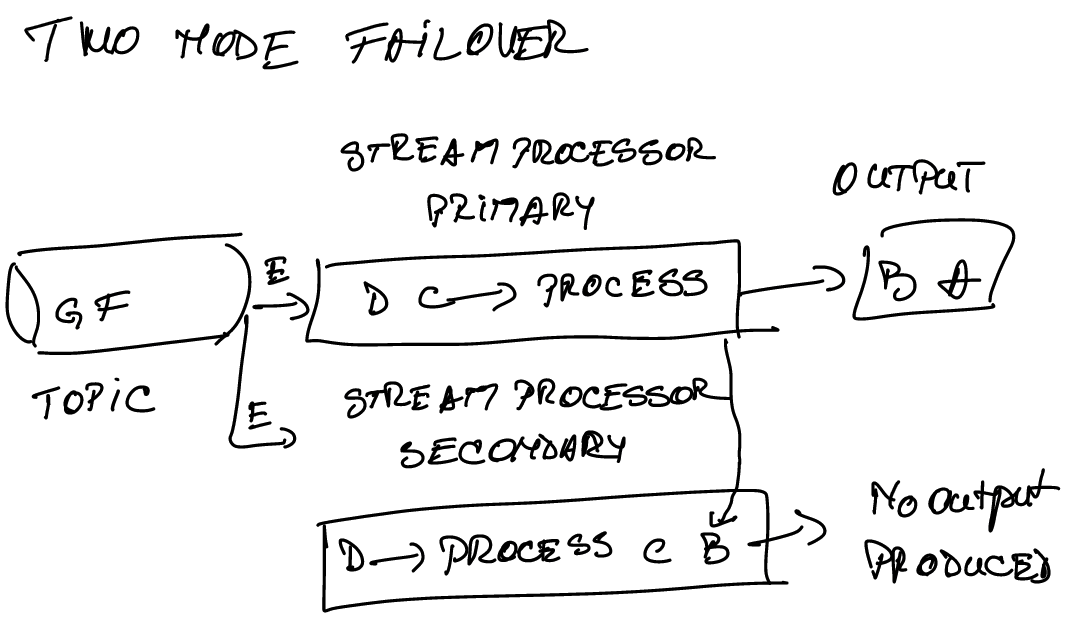 TWO MODE FAILOVER
STREAM PROCESSOR
PRIMARY
OUTPUT
G F
E
D C → PROCESS
B A
TOPIC
E
STREAM PROCESSOR
SECONDARY
D → PROCESS C B
No output
PRODUCED